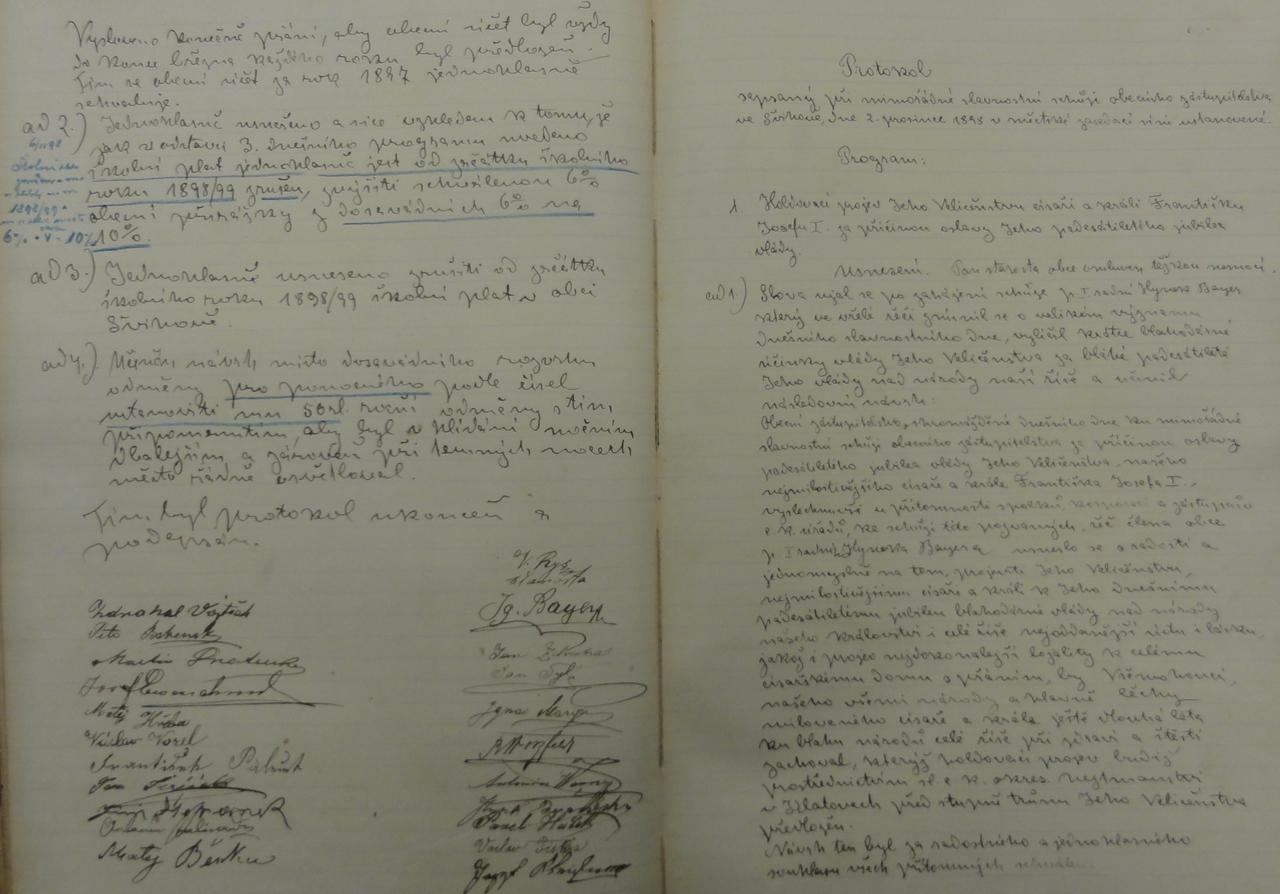 Vysloveno konečně přání, aby obecní účet byl vždy
do konce března každého roku byl předložen.
Tím se obecní účet za rok 1897 jednohlasně
schvaluje.
ad 2.) Jednohlasně usneseno a sice vzhledem k tomu, že
jak v odstavci 3. dnešního programu uvedeno
školní plat jednohlasně jest od začátku školního
roku 1898/99 zrušen, zvýšiti schválenou 6%
obecní přirážky z dosavadních 6% na
10%.
1898/99
6% 10%
ad 3.) Jednohlasně usneseno zrušiti od začátku
školního roku 1898/99 školní plat v obci
Švihově.
ad 4.) Učiněn návrh místo dosavadního rozvrhu
odměny pro ponocného podle čísel
ustanoviti mu 50 zl. roční odměny s tím
připomenutím, aby byl v hlídání nočním
dbalejším a zároveň při temných nocech
město řádně osvětloval.
Tím byl protokol ukončen a
podepsán.
V. Rys
starosta
Ig. Bayer
Vojtěch
Martin
Jan
Josef
Matěj Hůda
Václav Vorel
František
Jan
Antonín
Pavel
Václav
Matěj Beňku
Josef
Protokol
sepsaný při mimořádné slavnostní schůzi obecního zastupitelstva
ve Švihově, dne 2. prosince 1898 v městské zasedací síni ustanovené.
Program:
1. Holdovací projev Jeho Veličenstvu císaři a králi Františku
Josefu I. za příčinou oslavy Jeho padesátiletého jubilea
vlády.
Usnesení. Pan starosta obce omluven těžkou nemocí.
ad 1.) Slova ujal se po zahájení schůze p. I. radní Hynek Bayer
který ve vřelé řeči zmínil se o velikém významu
dnešního slavnostního dne, vylíčil krátce blahodárné
účinky vlády Jeho Veličenstva za blíhé padesátileté
Jeho vlády nad národy naší říše a učinil
následovní návrh:
Obecní zastupitelstvo, shromážděné dnešního dne ku mimořádné
slavnostní schůzi obecního zastupitelstva za příčinou oslavy
padesátiletého jubilea vlády Jeho Veličenstva, našeho
nejmilostivějšího císaře a krále Františka Josefa I.,
vyslechnuvši u přítomnosti spolků, korporací a zástupců
c. k. úřadů, ke schůzi této pozvaných, řeč člena obce
p. I. radního Hynka Bayera usneslo se s radostí a
jednomyslně na tom, projeviti Jeho Veličenstvu,
nejmilostivějšímu císaři a králi k Jeho dnešnímu
padesátiletému jubileu blahodárné vlády nad národy
našeho království i celé říše nejoddanější úctu i lásku,
jakož i projev nejdokonalejší loyality k celému
císařskému domu s přáním, by Všemohoucí,
našeho všemi národy a hlavně Čechy
milovaného císaře a krále ještě dlouhá léta
ku blahu národů celé říše při zdraví a štěstí
zachoval, kterýž holdovací projev budiž
prostřednictvím sl. c. k. okres. hejtmanství
v Klatovech před stupně trůnu Jeho Veličenstva
předložen.
Návrh ten byl za radostného a jednohlasného
souhlasu všech přítomných schválen.